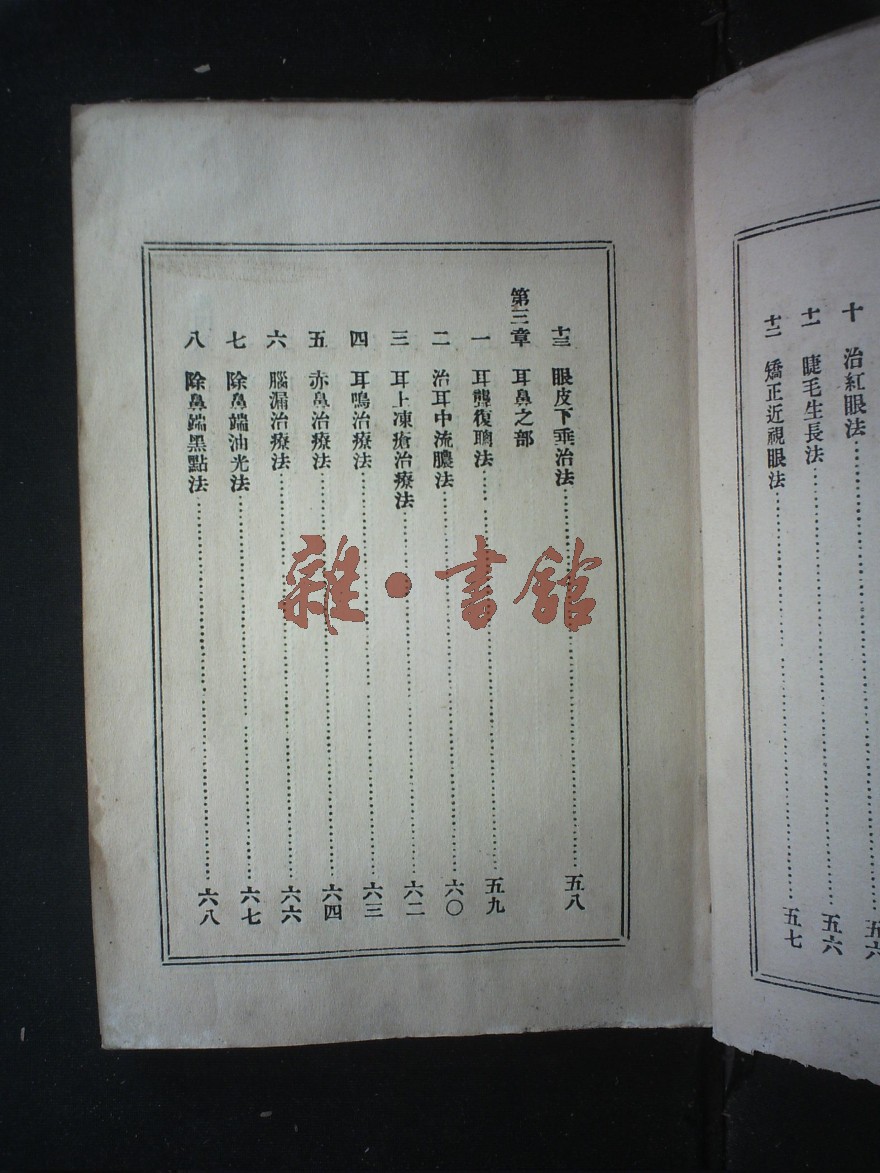 十 治紅眼法 五六
十一 睫毛生長法 五六
十二 矯正近視眼法 五七
十三 眼皮下垂治法 五八
第三章 耳鼻之部
一 耳聾復聰法 五九
二 治耳中流膿法 六〇
三 耳上凍瘡治療法 六二
四 耳鳴治療法 六三
五 赤鼻治療法 六四
六 腦漏治療法 六六
七 除鼻端油光法 六七
八 除鼻端黑點法 六八
雜·書館